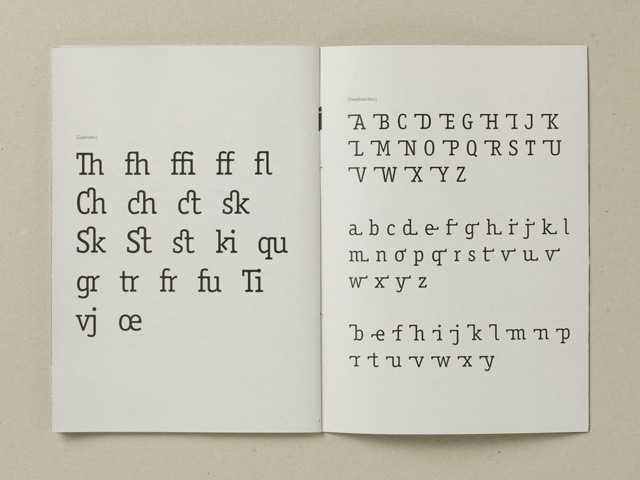 Th fh ffi ff fl
Ch ch ct sk
Sk St st ki qu
gr tr fr fu Ti
vj œ
A B C D E G H I J K
L M N O P Q R S T U
V W X Y Z
a b c d e f g h i j k l
m n o p q r s t v u v
w x y z
b e f h i j k l m n p
r t u v w x y